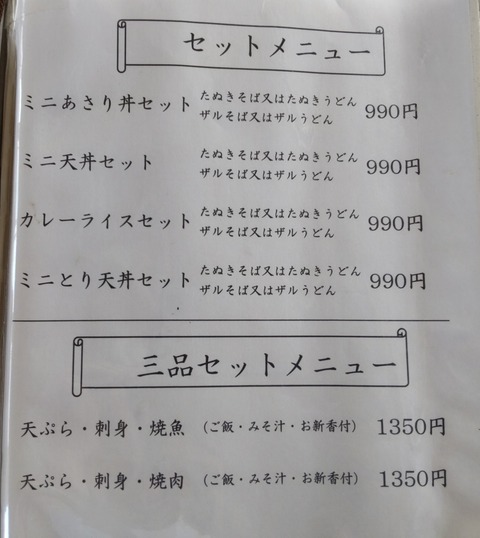 セットメニュー
ミニあさり丼セット たぬきそば又はたぬきうどん 990円
ザルそば又はザルうどん
ミニ天丼セット たぬきそば又はたぬきうどん 990円
ザルそば又はザルうどん
カレーライスセット たぬきそば又はたぬきうどん 990円
ザルそば又はザルうどん
ミニとり天丼セット たぬきそば又はたぬきうどん 990円
ザルそば又はザルうどん
三品セットメニュー
天ぷら・刺身・焼魚 (ご飯・みそ汁・お新香付) 1350円
天ぷら・刺身・焼肉 (ご飯・みそ汁・お新香付) 1350円